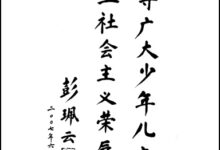 导广大少年儿
社会主义荣辱
彭珮云
二〇〇七年六